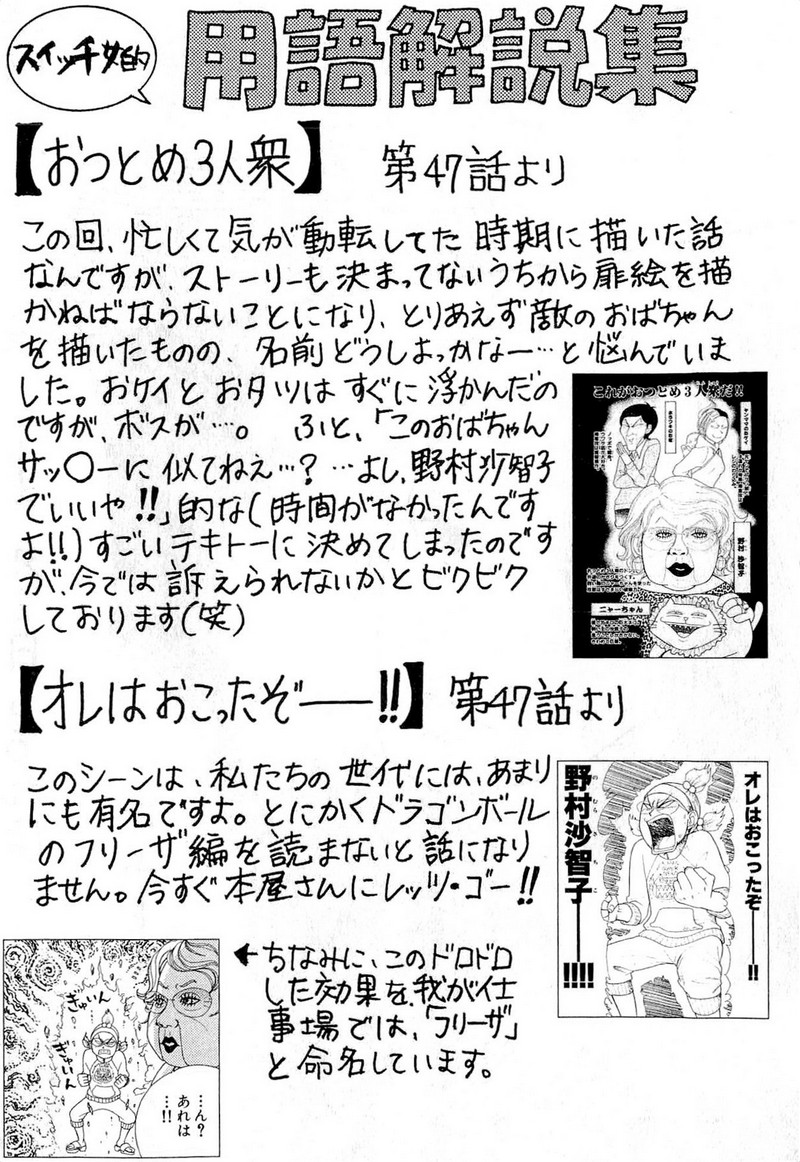 スイッチ女的
用語解説集
【おつとめ3人衆】 第47話より
この回、忙しくて気が動転してた 時期に描いた話
なんですが、ストーリーも決まってないうちから扉絵を描
かねばならないことになり、とりあえず敵のおばちゃん
を描いたものの、名前どうしよっかなー…と悩んでいま
した。おケイとおタツはすぐに浮かんだの
ですが、ボスが…。 ふと、「このおばちゃん
サッ〇ーに似てねえ…?…よし、野村沙智子
でいいや!!」的な(時間がなかったんです
よ!!)すごいテキトーに決めてしまったのです
が、今では訴えられないかとビクビク
しております(笑)
これがおつとめ3人衆だ!!
野村 沙智子
ニャーちゃん
【オレはおこったぞ――!!】 第47話より
このシーンは、私たちの世代には、あまり
にも有名ですよ。とにかくドラゴンボール
のフリーザ編を読まないと話になり
ません。今すぐ本屋さんにレッツ・ゴー!!
オレはおこったぞ――!!
野村沙智子――!!!!
のむらさちこ
←ちなみに、このドロドロ
した効果を、我が仕
事場では、「フリーザ」
と命名しています。
ぎゅいん
ぎゅいん
…ん?
あれは
…!!